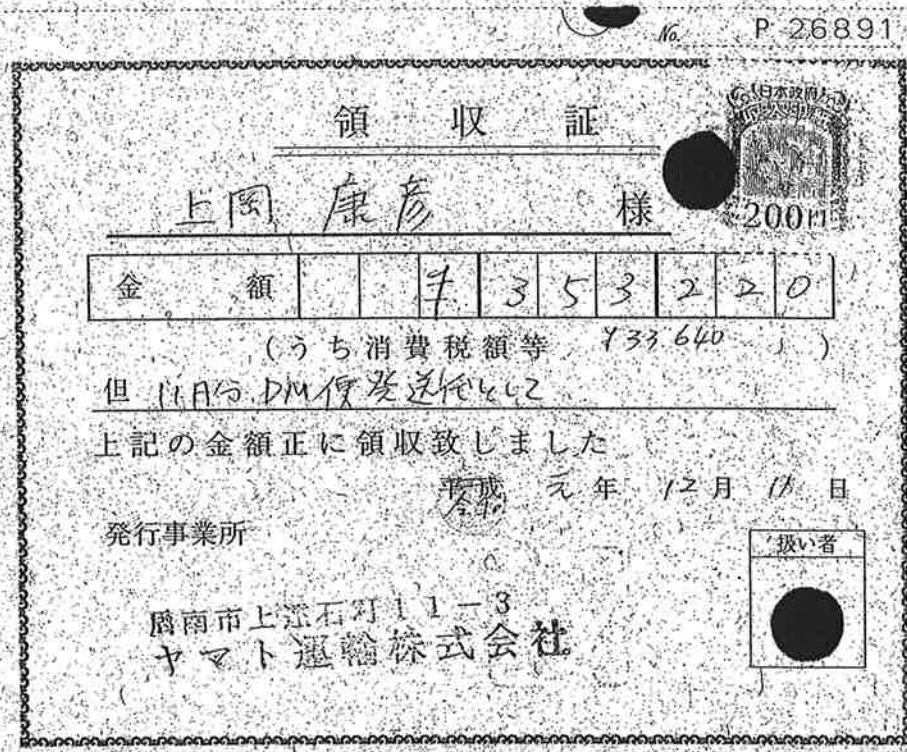 No. P-26891
日本政府
領収証
200円
上岡 康彦 様
金額 ¥353220
(うち消費税額等 ¥33640 )
但 11月分 DM便発送代として
上記の金額正に領収致しました
平成 元年 12月 11日
発行事業所
扱い者
周南市上遠石町11-3
ヤマト運輸株式会社